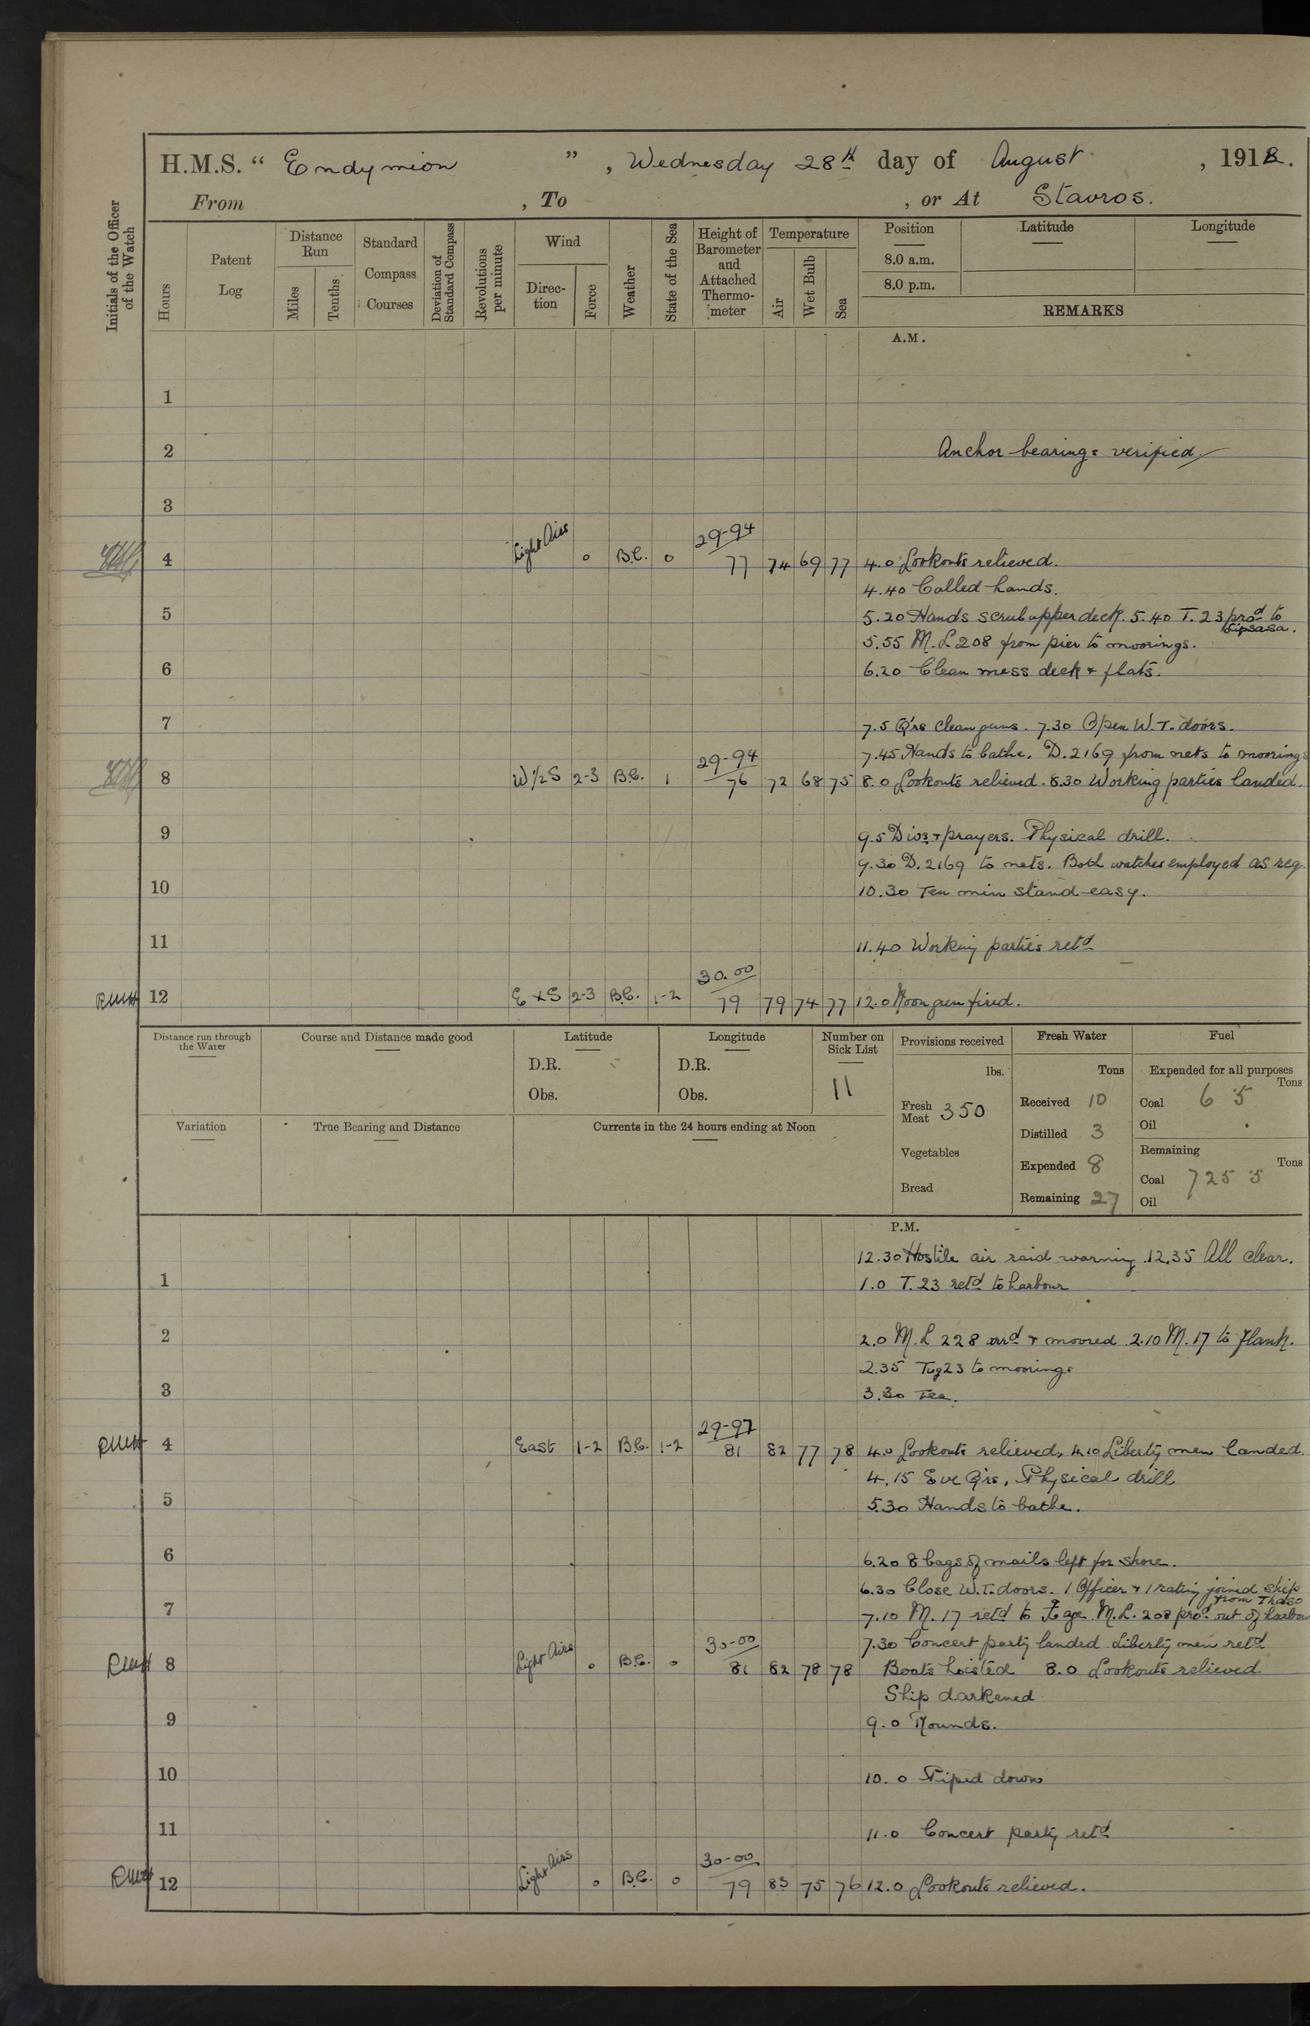 H.M.S. “ Endymion ” , Wednesday 28th day of August , 1918.
From , To , or At Stavros.
Initials of the Officer of the Watch
Hours
Patent Log
Distance Run
Miles
Tenths
Standard Compass Courses
Deviation of Standard Compass
Revolutions per minute
Wind
Direction
Force
Weather
State of the Sea
Height of Barometer and Attached Thermometer
Temperature
Air
Wet Bulb
Sea
Position Latitude Longitude
8.0 a.m.
8.0 p.m.
REMARKS
A.M.
1
2 Anchor bearings verified
3
29-94
4 Light Airs 0 B.C. 0 77 74 69 77 4.0 Lookouts relieved.
4.40 Called hands.
5 5.20 Hands scrub upper deck. 5.40 T. 23 procd to
5.55 M.L 208 from pier to moorings.
6 6.20 Clean mess deck + flats.
7 7.5 Q'rs clean guns. 7.30 Open W.T. doors.
29-94 7.45 Hands to bathe. D.2169 from nets to moorings
8 W½S 2-3 B.C. 1 76 72 68 75 8.0 Lookouts relieved. 8.30 Working parties landed.
9 9.5 Divs + prayers. Physical drill.
9.30 D.2169 to nets. Both watches employed as req.
10 10.30 Ten min stand-easy.
11 11.40 Working parties retd
30.00
12 ExS 2-3 B.C. 1-2 79 79 74 77 12.0 Noon gun fired.
Distance run through the Water
Course and Distance made good
Latitude
D.R.
Obs.
Longitude
D.R.
Obs.
Number on Sick List
11
Provisions received
lbs.
Fresh Meat 350
Vegetables
Bread
Fresh Water
Tons
Received 10
Distilled 3
Expended 8
Remaining 27
Fuel
Expended for all purposes
Tons
Coal 6 5
Oil
Remaining
Tons
Coal 725 5
Oil
Variation
True Bearing and Distance
Currents in the 24 hours ending at Noon
P.M.
12.30 Hostile air raid warning. 12.35 All clear.
1 1.0 T. 23 retd to harbour
2 2.0 M.L 228 arrd + moored 2.10 M.17 to flank.
2.35 Tug 23 to moorings
3 3.30 Tea.
29-97
4 East 1-2 B.C. 1-2 81 82 77 78 4.0 Lookouts relieved, 4.10 Liberty men landed.
4.15 Eve Q'rs, Physical drill
5 5.30 Hands to bathe.
6 6.20 8 bags of mails left for shore.
6.30 Close W.T. doors. 1 Officer + 1 rating joined ship
from Thaso
7 7.10 M.17 retd to M.L. 208 procd out of harbour
30-00 7.30 Concert party landed. Liberty men retd
8 Light Airs 0 B.C. 0 81 82 78 78 Boats hoisted 8.0 Lookouts relieved
Ship darkened
9 9.0 Rounds.
10 10.0 Piped down
11 11.0 Concert party retd
30-00
12 Light Airs 0 B.C. 0 79 83 75 76 12.0 Lookouts relieved.